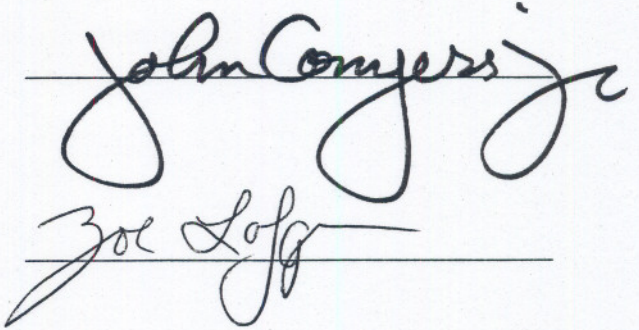 John Conyers Jr
Zoe Lofgren